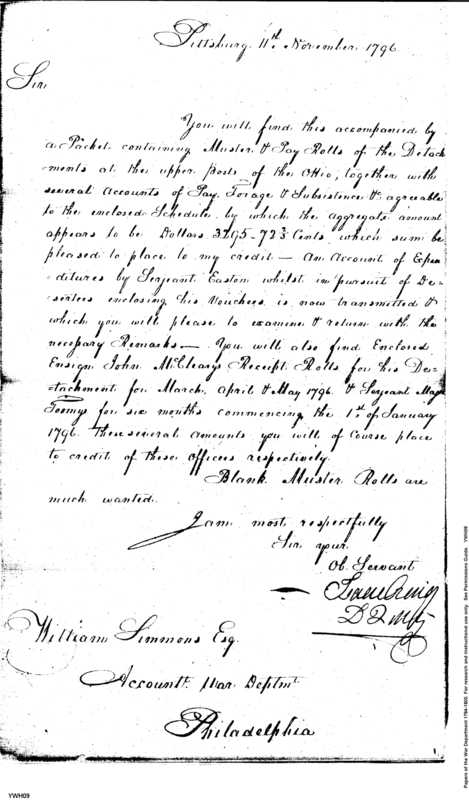 Pittsburg 11th November 1796
Sir
You will find this accompanied by
a Packet containing Muster & Pay Rolls of the Detach
ments at the upper posts of the Ohio, together with
several Accounts of Pay, Forage & Subsistence & agreeable
to the enclosed Schedule, by which the aggregate amount
appears to be Dollars 3295-72⅓ Cents which sum be
pleased to place to my credit — An Account of Expe
ditures by Serjeant Easton whilst in pursuit of De-
serters enclosing his Vouchers is now transmitted &
which you will please to examine & return with the
necessary Remarks — You will also find Enclosed
Ensign John McClearys Receipt Rolls for his De=
tachment for March, April & May 1796 & Serjeant Maj
Toomys for six months commencing the 1st of January
1796. these several amounts you will of Course place
to credit of these Officers respectively.
Blank Muster Rolls are
much wanted.
I am most respectfully
Sir your
Ob. Servant
Isaac Craig
D Q M G
William Simmons Esq.
Accountt. War Deptmt
Philadelphia
YWH09
Papers of the War Department 1784-1800. For research and instructional use only. See Permissions Guide. YWH09